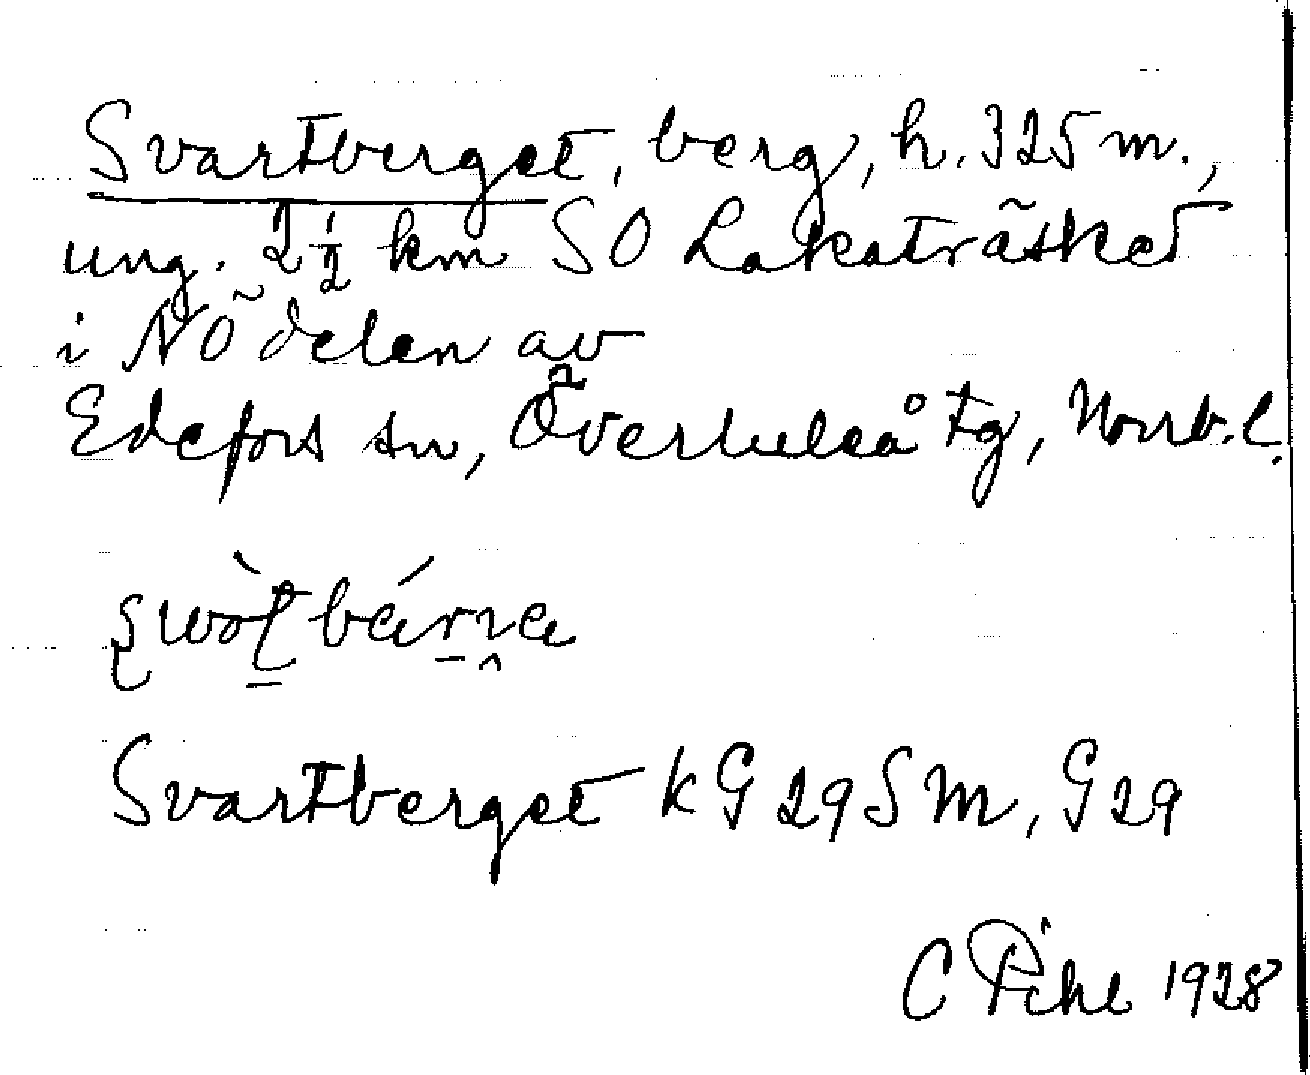 Svartberget, berg, h. 325 m.,
ung. 2½ km SO Laketräsket
i NÖ delen av
Edefors sn, Överluleå tg, Norrb. l.
Svartberget KG 29 SM, G 29
C Pihl 1928